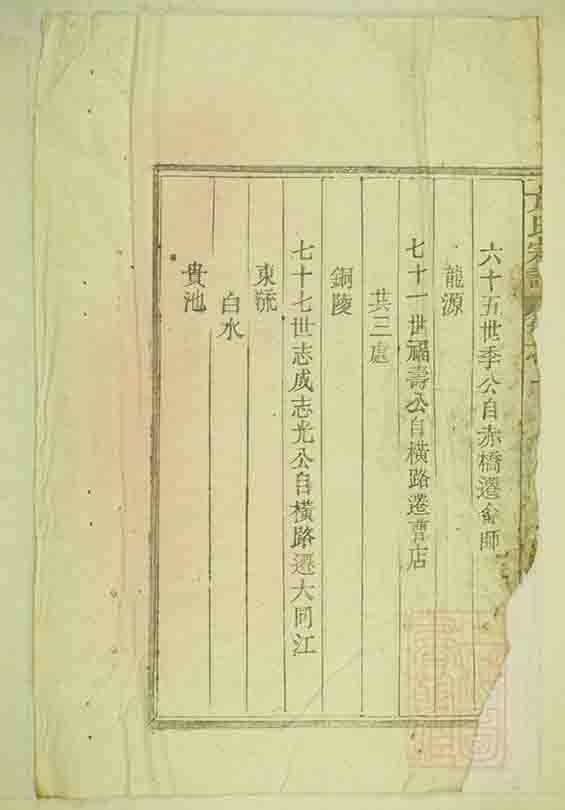 六十五世季公自赤橋遷
龍源
七十一世福壽公自橫路遷曹店
共三處
銅陵
七十七世志成志光公自橫路遷大同江
東流
白水
貴池